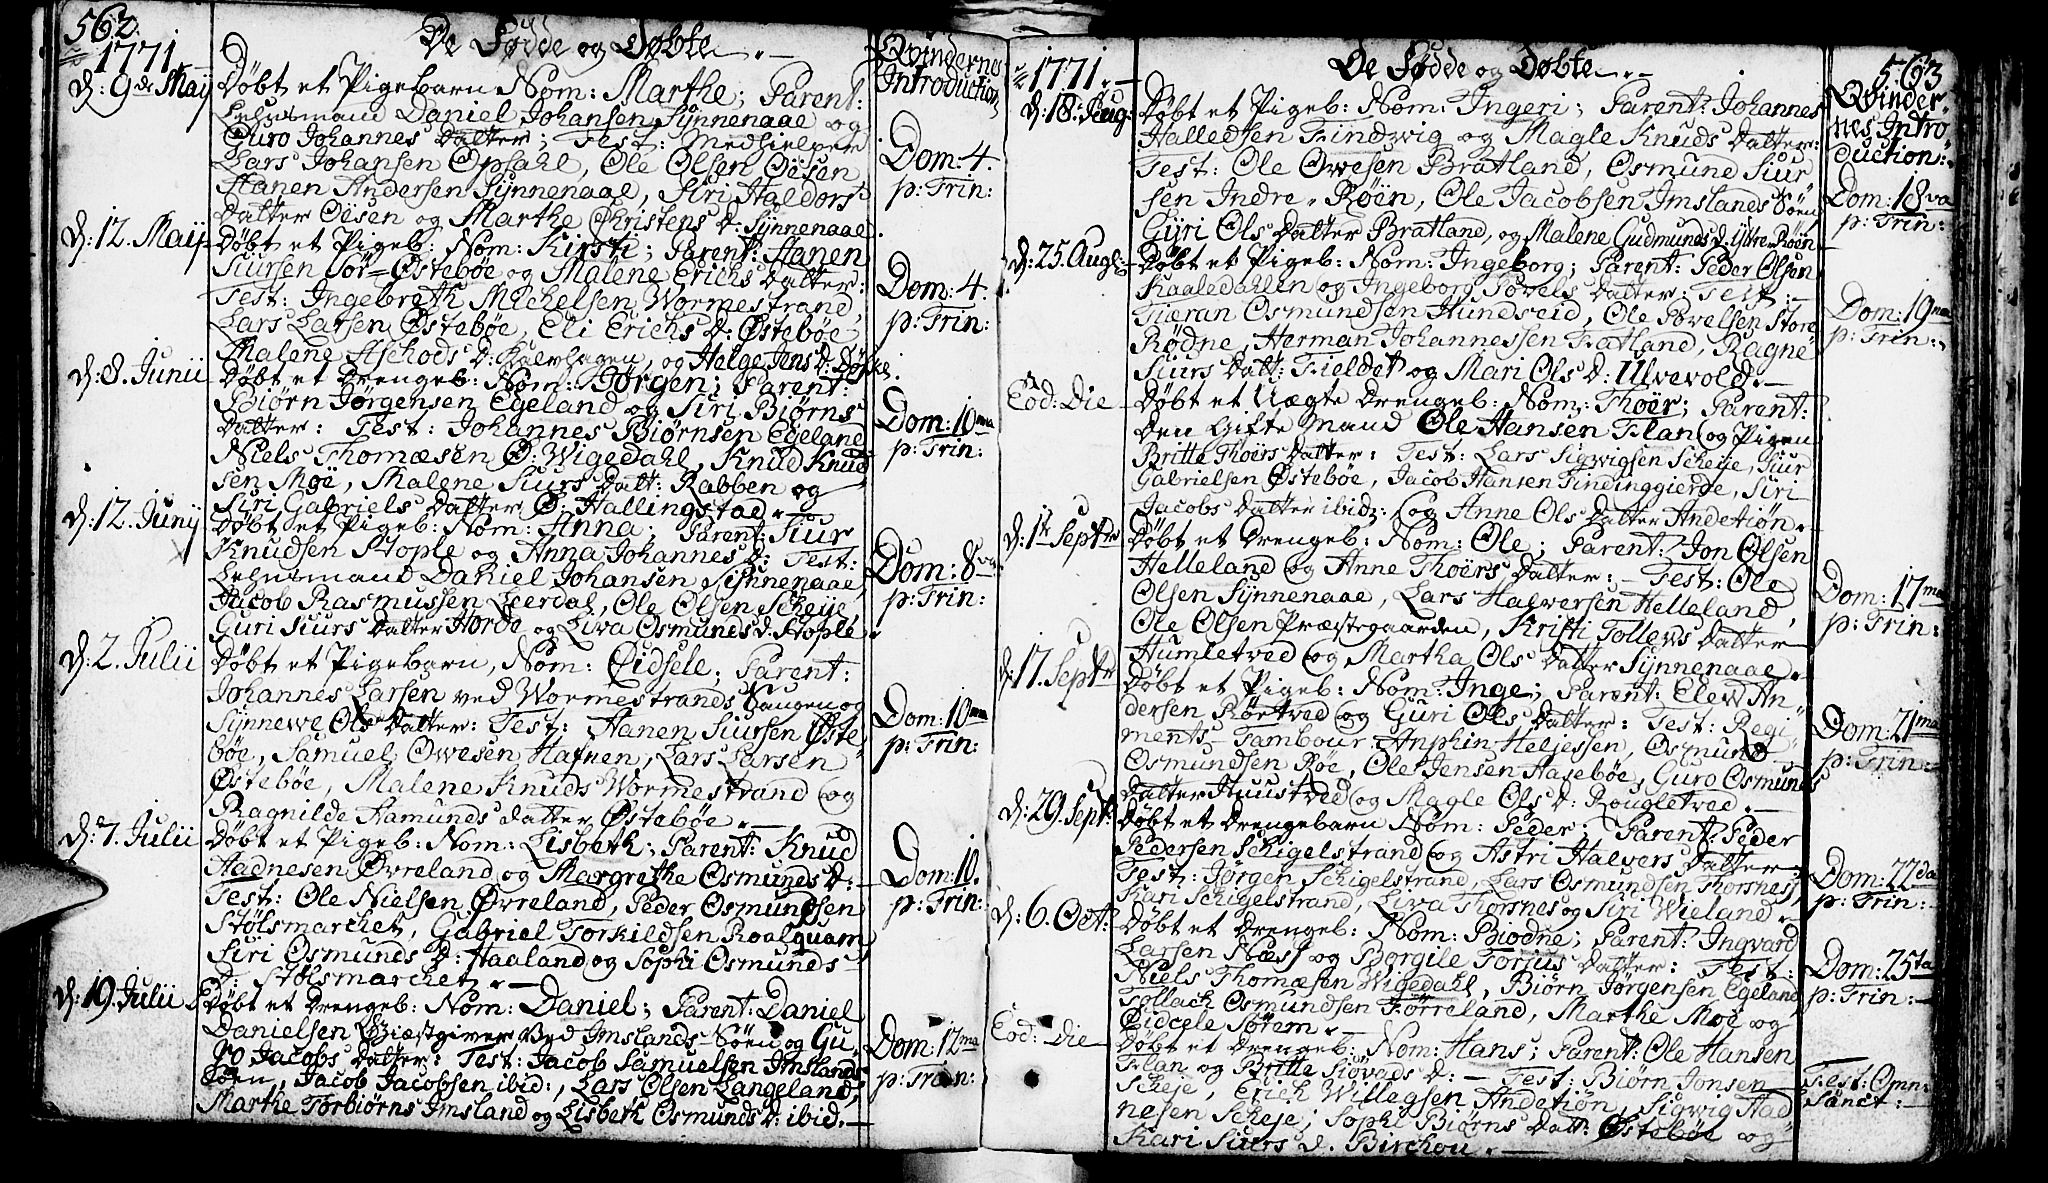 562.
1771
De Fødde og Døbte.
Qvindernes
Introduction
d: 9de Maij
Døbt et Pigebarn Nom: Marthe; Parent:
Lehnsmand Daniel Johansen Synnenaae og
Guro Johannes Datter; Test: Medhielper
Lars Johansen Opsahl, Ole Olsen Oësen
Hanen Andersen Synnenaae, Siri Haldors
Datter Oësen og Marthe Christens D: Synnenaae.
Dom: 4.
p: Trin:
d: 12. Maij
Døbt et Pigeb: Nom: Kirsti; Parent: Hanen
Siursen Sør-Østebøe og Malene Erichs Datter:
Test: Ingebreth Michelsen Wormestrand,
Lars Larsen Østebøe, Eli Erichs D: Østebøe
Malene Aschods D: Kalvhagen, og Helge Jens D:
Dom: 4.
p: Trin:
d: 8. Junii
Døbt et Drengeb: Nom: Jørgen; Parent:
Biørn Jørgensen Egeland og Siri Biørns
Datter: Test: Johannes Biørnsen Egeland
Niels Thomæsen Ø: Wigedahl, Knud Knud
sen Moë, Malene Siurs Datt: Rabben og
Siri Gabriels Datter Ø: Hallingstad.
Dom: 10ma
p: Trin:
d: 12. Junij
Døbt et Pigeb: Nom: Anna; Parent: Siur
Knudsen Stople og Anna Johannes D: Test:
Lehnsmand Daniel Johansen Synnenaae,
Jacob Rasmussen Leerdal, Ole Olsen Scheije
Guri Siurs Datter Hordo og Liva Osmunds D. Stople.
Dom: 8va
p: Trin:
d: 2. Julii
Døbt et Pigebarn, Nom: Eidsele; Parent:
Johannes Larsen ved Wormestrands Saugen og
Synnewe Ols Datter: Test: Hanen Siursen Øste
bøe, Samuel Owesen Hafnen, Lars Larsen
Østebøe, Malene Knuds Wormestrand og
Ragnilde Hamunds datter Østebøe.
Dom: 10ma
p: Trin:
d: 7. Julii
Døbt et Pigeb: Nom: Lisbeth; Parent: Knud
Hadnesen Øvreland og Margrethe Osmunds D:
Test: Ole Nielsen Øvreland, Peder Osmundsen
Stølsmarchet, Gabriel Torkildsen Roalquam,
Siri Osmunds D: Haaland og Sophi Osmunds
D: Stølsmarchet.
Dom: 10.
p: Trin:
d: 19. Julii
Døbt et Drengeb: Nom: Daniel; Parent: Daniel
Danielsen Giæstgiver Ved Imslands-Søen og Gu
ro Jacobs Datter: Test: Jacob Samuelsen Imslands
Søen, Jacob Jacobsen ibid:, Lars Olsen Langeland,
Marthe Torbiørns Imsland og Lisbeth Osmunds D: ibid.
Dom: 12ma
p: Trin:
563
1771.
De Fødde og Døbte.
Qvinder-
nes Intro
duction:
d: 18. Aug:
Døbt et Pigeb: Nom: Ingeri; Parent: Johannes
Halledsen Findwig og Magle Knuds Datter:
Test: Ole Owesen Bratland, Osmund Siur
sen Indre-Røen, Ole Jacobsen Imslands Søen
Gyri Ols Datter Bratland, og Malene Gudmunds D: Ystre Røen
Dom: 18va
p: Trin:
d: 25. Aug:
Døbt et Pigeb: Nom: Ingeborg; Parent: Peder Olsen
Kaaledahlen og Ingeborg Povels Datter: Test:
Tiæran Osmundsen Hundseid, Ole Povelsen Store
Rødne, Herman Johannessen Fatland, Ragne
Siurs Datt: Fieldet og Mari Ols D: Ulvevold.
Dom: 19na
p: Trin:
Eod: Die
Døbt et Uægte Drengeb: Nom: Thoër; Parent:
Den Gifte Mand Ole Hansen Flan og Pigen
Britte Thoërs Datter: Test: Lars Sigwigsen Scheije, Siur
Gabrielsen Østebøe, Jacob Hansen Tindinggierde, Siri
Jacobs Datter ibid: og Anne Ols Datter Andetiøn.
d: 1te Septr
Døbt et Drengeb: Nom: Ole; Parent: Jon Olsen
Helleland og Anne Thoërs Datter: Test: Ole
Olsen Synnenaae, Lars Halversen Helleland,
Ole Olsen Præstegaarden, Kristi Tollevs Datter
Humletved og Martha Ols Datter Synnenaae.
Dom: 17ma
p: Trin:
d: 17. Septr
Døbt et Pigeb: Nom: Inge; Parent: Elew An
dersen Røetved og Guri Ols Datter: Test: Regi
ments-Tambour Anphin Heljessen, Osmund
Osmundsen Røe, Ole Jensen Aasebøe, Guro Osmunds
Datter Huustved og Magle Ols D: Rougletved.
Dom: 21ma
p: Trin:
d: 29. Septr
Døbt et Drengebarn Nom: Peder; Parent: Peder
Pedersen Schigelstrand og Astri Halvers Datter
Test: Jørgen Schigelstrand, Lars Osmundsen Thorsnes,
Kari Schigelstrand, Liva Thorsnes og Siri Wieland.
Dom: 22da
p: Trin:
d: 6. Oct:
Døbt et Drengeb: Nom: Biodne; Parent: Ingvard
Larsen Næss og Borgile Torjus Datter: Test:
Niels Thomæsen Wigedahl, Biørn Jørgensen Egeland,
Tollach Osmundsen Førreland, Marthe Moe og
Eidcele Sørem.
Dom: 25ta
p: Trin:
Eod: Die
Døbt et Drengeb: Nom: Hans; Parent: Ole Hansen
Flan og Britte Siovads D: Test: Biørn Jonsen
Scheje, Erich Willegsen Andetiøn, Sigwig Had
nesen Scheje, Sophi Biørns Datt: Østebøe og
Kari Siurs D. Birchou.
Fest: Omn:
Sanct: